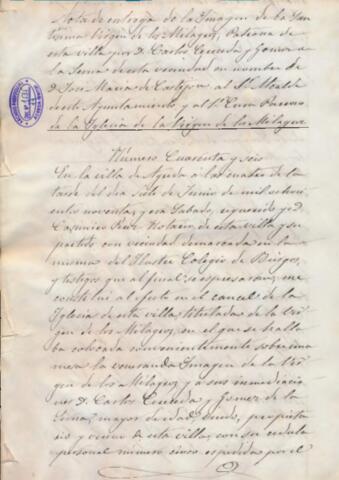 Nota de entrega de la Imagen de la San-
tísima Virgen de los Milagros, Patrona de
esta villa por D. Carlos Cereceda y Gomez de
la Serna de esta vecindad en nombre de
D. Jose Maria de Castejon al Sr. Alcalde
de este Ayuntamiento y al Sr. Cura Parroco
de la Iglesia de la Virgen de los Milagros
Número Cuarenta y seis
En la villa de Agreda a las cuatro de la
tarde del dia siete de Junio de mil ochoci-
entos noventa, y era Sabado, requerido yo D.
Casimiro Ruiz Notario de esta villa y su
partido con vecindad demarcada en la
misma del Ilustre Colegio de Burgos,
y testigos que al final se espresaran, me
constitui al efecto en el cancel de la
Iglesia de esta villa, titulada de la Vir-
gen de los Milagros, en el que se halla-
ba colocada convenientemente sobre una
mesa la veneranda Imagen de la Vir-
gen de los Milagros y a sus inmediacio-
nes D. Carlos Cereceda y Gomez de la
Serna, mayor de edad, viudo, propieta-
rio y vecino de esta villa, con su cedula
personal numero cinco expedida por el